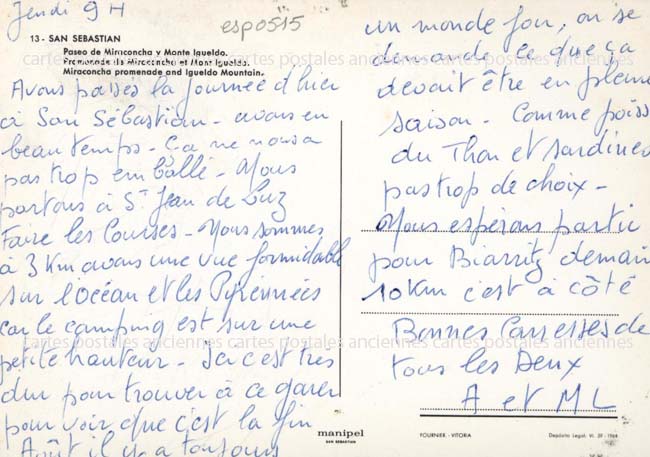 Jeudi 9 H
esp0515
13 - SAN SEBASTIAN
Paseo de Miraconcha y Monte Igueldo.
Promenade de Miraconcha et Mont Igueldo.
Miraconcha promenade and Igueldo Mountain.
Avons passés la journée d'hier
à San Sébastian - avons eu
beau temps - Ca ne nous a
pas trop emballé - Nous
partons à St Jean de Luz
faire les courses - Nous sommes
à 3 Km avons une vue formidable
sur l'océan et les Pyrénnées
car le camping est sur une
petite hauteur - Ici c'est très
dur pour trouver à ce garer
pour voir que c'est la fin
Août il y a toujours
un monde fou, on se
demande ce que ça
devait être en pleine
saison - Comme poiss
du Thon et sardines
pas trop de choix -
Nous espérons partir
pour Biarritz demain
10 Km c'est à côté
Bonnes Caresses de
tous les Deux
A et ML
cartes postales anciennes cartes postales anciennes cartes postales anciennes
cartes postales anciennes cartes postales anciennes cartes postales anciennes
manipel
SAN SEBASTIAN
FOURNIER - VITORIA
Depósito Legal. VI. 39 - 1964